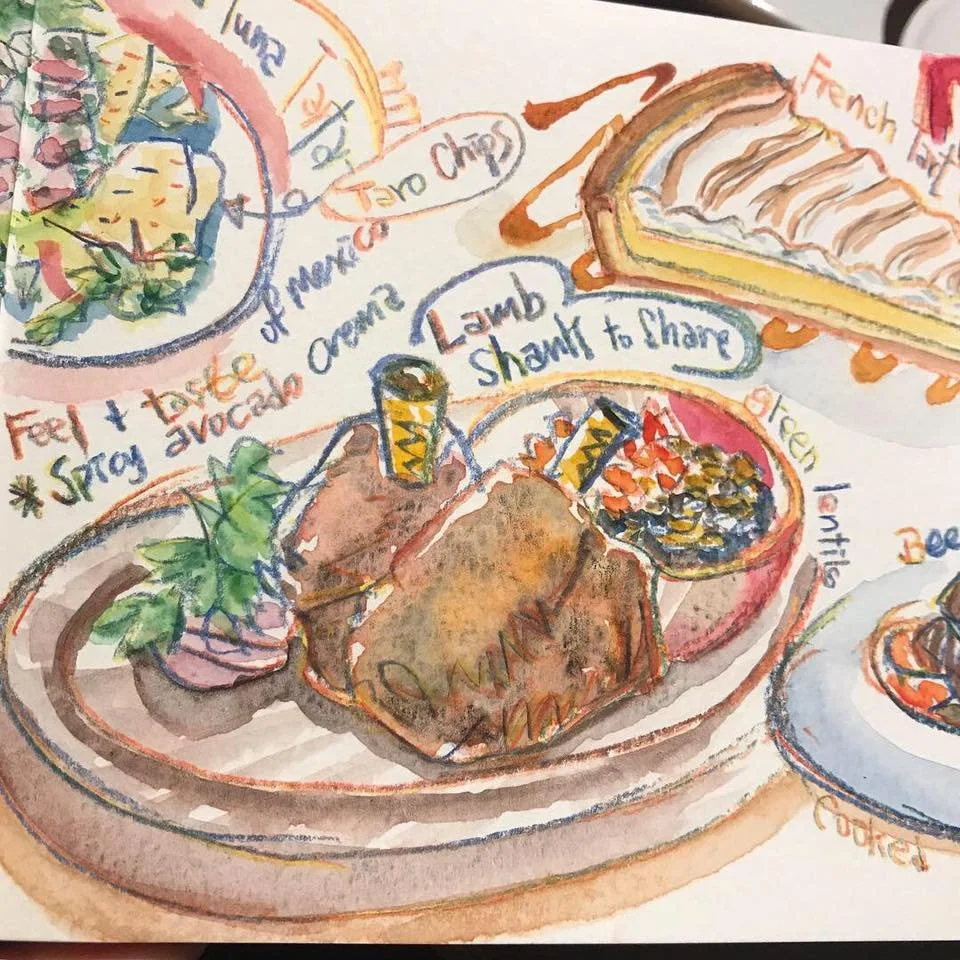 Tuna
Taro Chips
French Tart
of Mexico
Crema
Lamb
Shank to Share
Feel + taste
* Spicy avocado
green lentils
Cooked